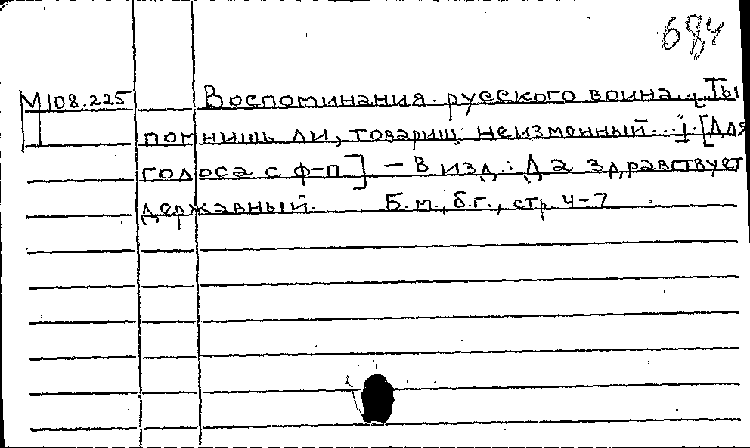 684
М 108.225 Воспоминания русского воина. „Ты
помнишь ли, товарищ неизменный...". [Для
голоса с ф-п] — В изд.: Да здравствует
державный. Б.м., б.г., стр. 4-7